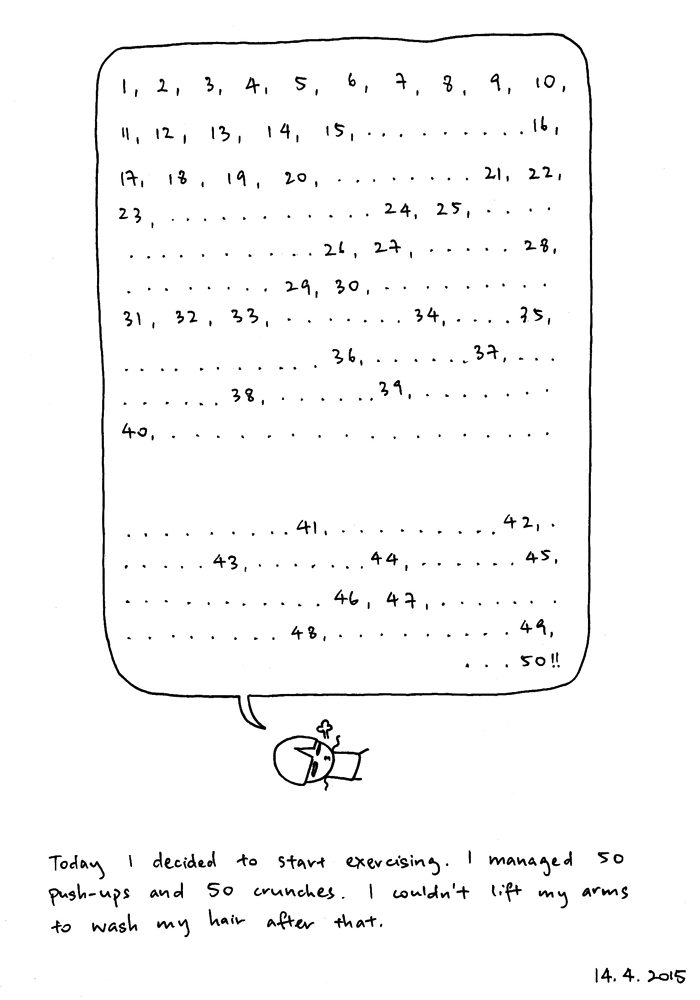 1, 2, 3, 4, 5, 6, 7, 8, 9, 10,
11, 12, 13, 14, 15, . . . . . . . . . 16,
17, 18, 19, 20, . . . . . . . . 21, 22,
23, . . . . . . . . . . . 24, 25, . . . .
. . . . . . . . . . 26, 27, . . . . . 28,
. . . . . . . . 29, 30, . . . . . . . . .
31, 32, 33, . . . . . . . 34, . . . . 35,
. . . . . . . . . . . 36, . . . . . . 37, . . .
. . . . . . 38, . . . . . . 39, . . . . . . .
40, . . . . . . . . . . . . . . . . . .
. . . . . . . . . 41, . . . . . . . . . 42, .
. . . . . 43, . . . . . . . 44, . . . . . . 45,
. . . . . . . . . . . 46, 47, . . . . . . .
. . . . . . . . . 48, . . . . . . . . . 49,
. . . 50!!
Today I decided to start exercising. I managed 50
push-ups and 50 crunches. I couldn't lift my arms
to wash my hair after that.
14. 4. 2015